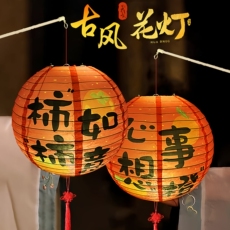 古风花灯
柿柿如意
心想事橙